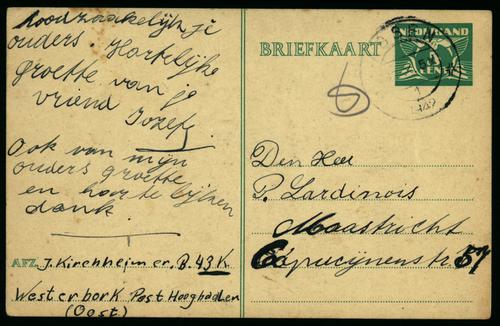 noodzoakelijk je
ouders. Hartelijke
groette van je
vriend
Jozef.
Ook van mijn
ouders groette
en hartelijken
dank.
AFZ. J. Kirchheimer, B. 43 K
Westerbork Post Hooghaalen
(Oost)
BRIEFKAART
NEDERLAND
5
CENT
1942
6
Den Heer
P. Lardinois
Maastricht
Capucijnenstr 57